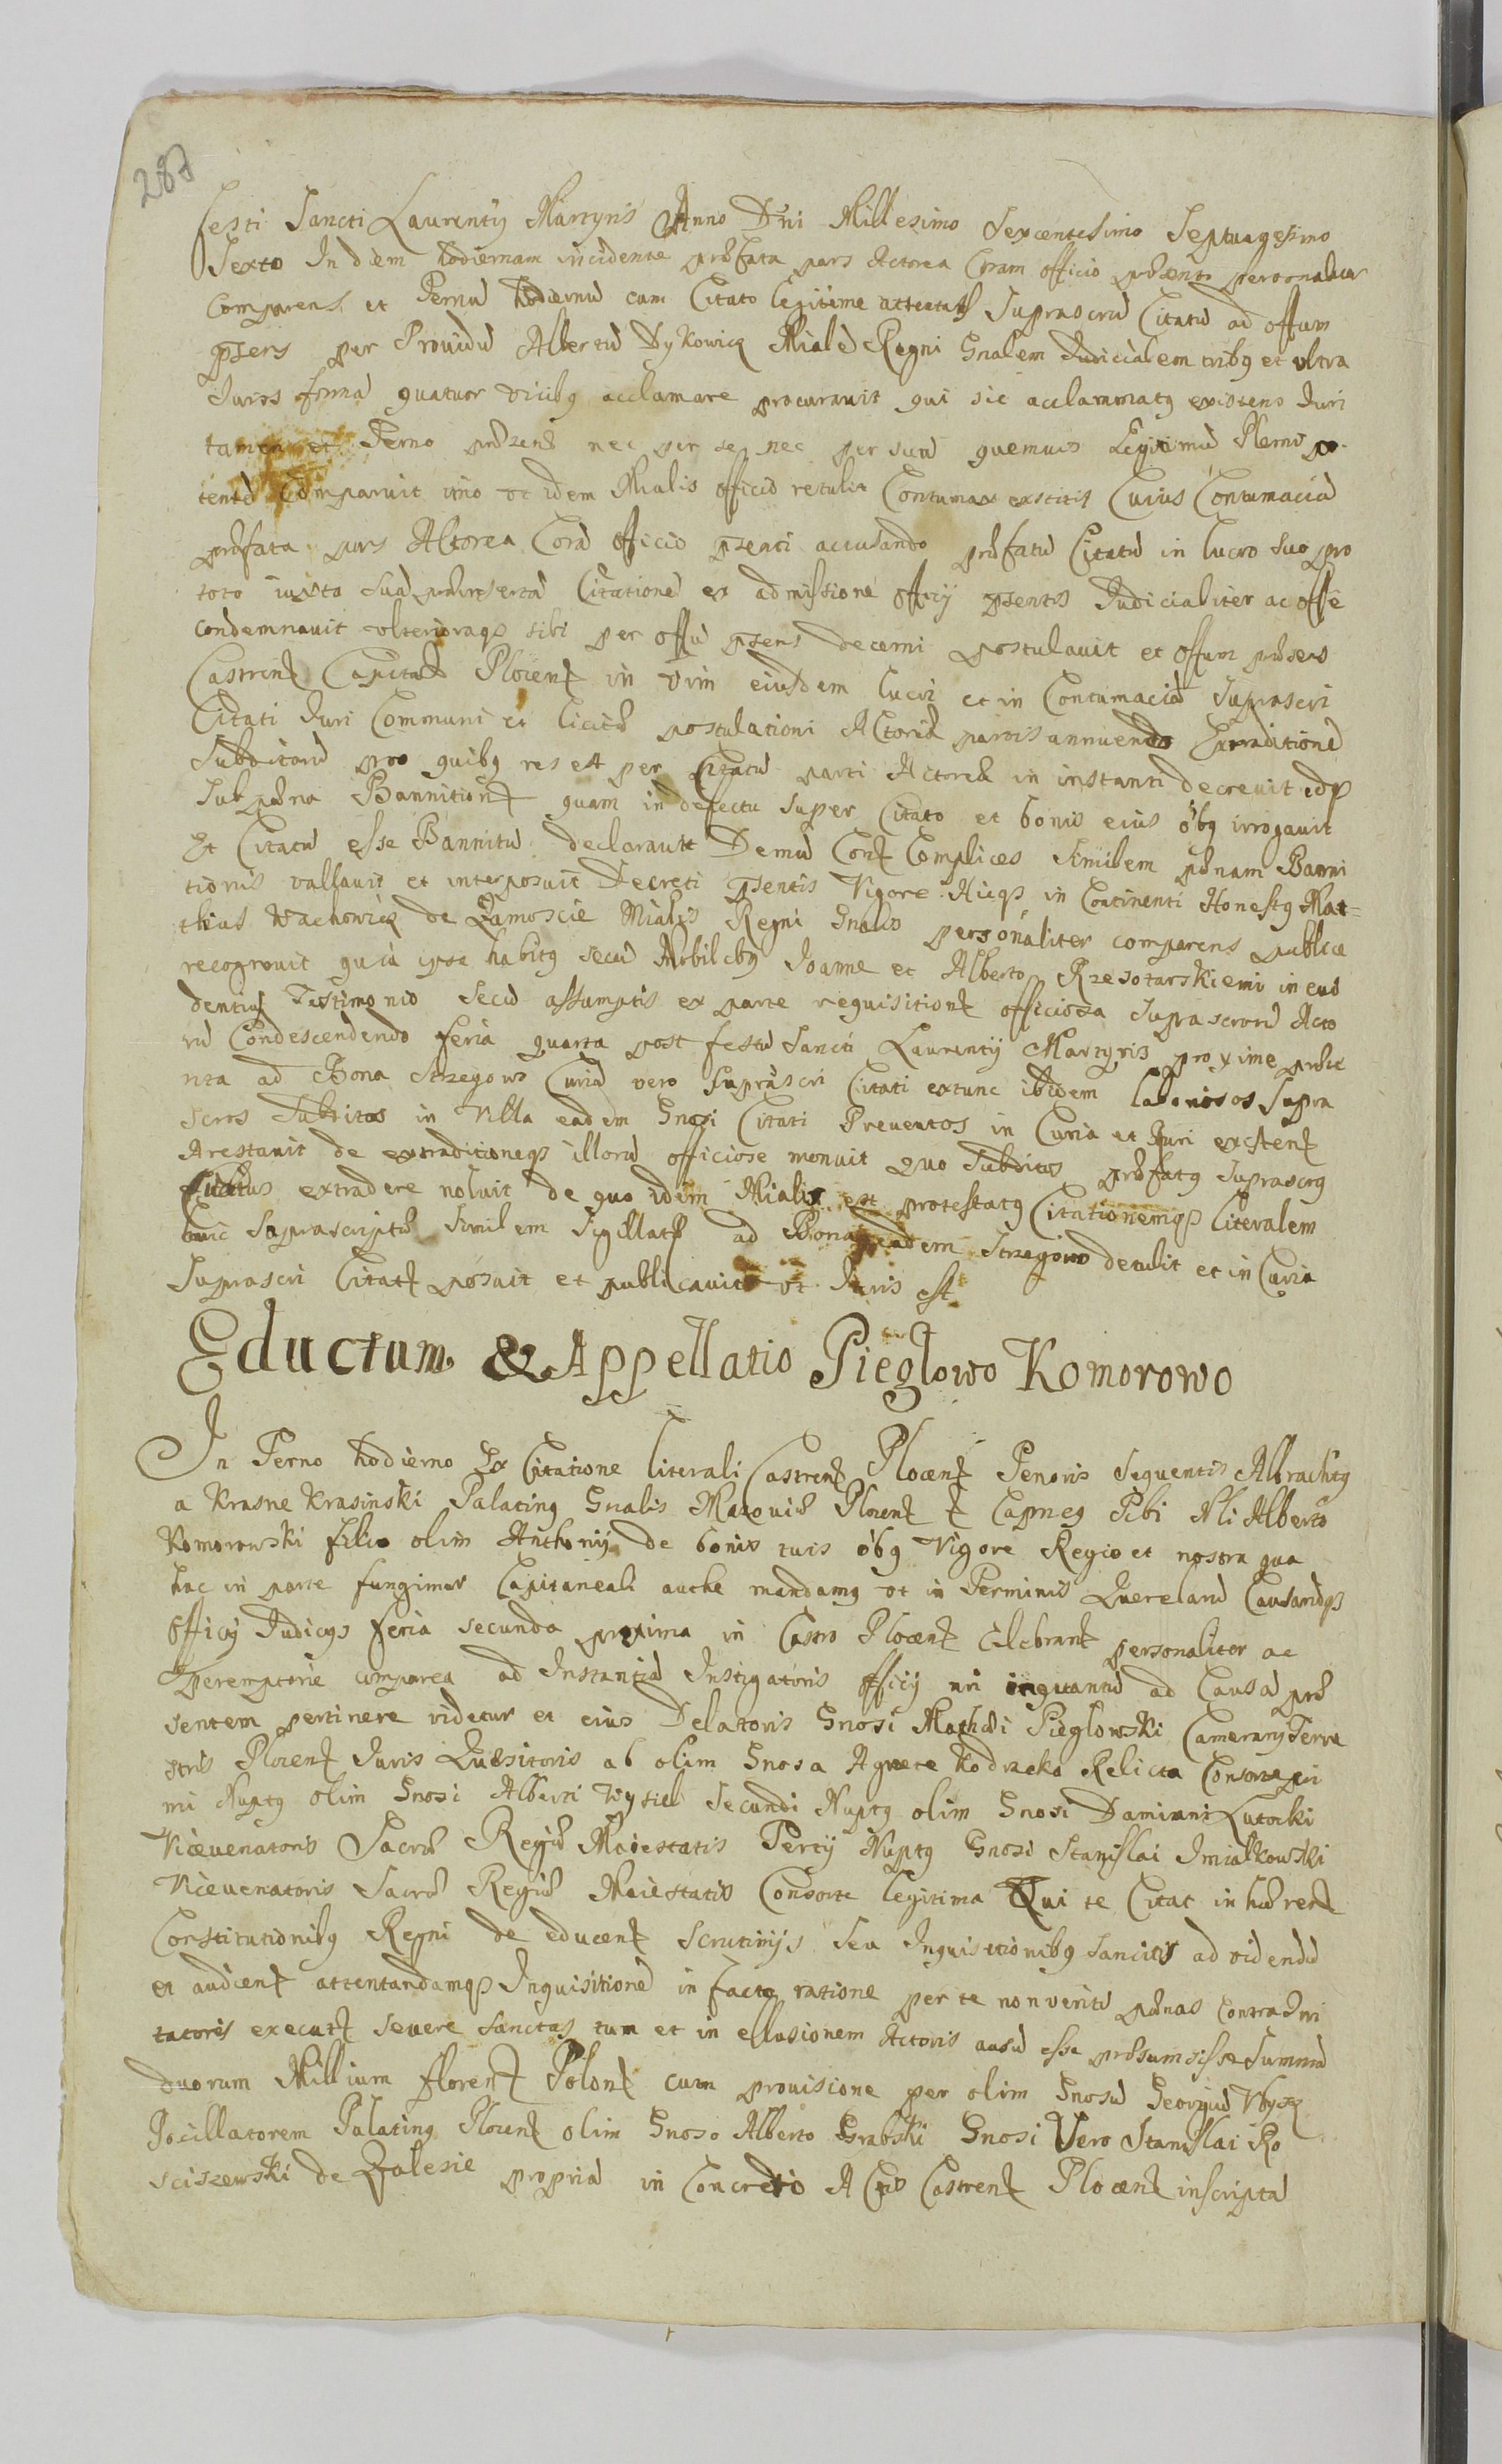 287
festi Sancti Laurentij Martyris Anno Dni Millesimo Sexcentesimo Septuagesimo
Sexto In diem hodiernam incidente præfata pars Actorea Coram officio præsenti personaliter
Comparens et Ternũ hodiernũ cum Citato legitime attentatũ Suprascrũ Citatũ ad offum
pñs per Providũ Albertũ Dykowicz Mialẽ Regni Gnalem Judicialem tribg et ultra
Juris formã quatuor vicibg acclamare procurauit qui sic acclammatg existens Juri
tamen et Terno præsenti nec per se nec per suũ quemuis Legitimũ Pleni po-
tentẽ Comparuit imo ut idem Mialis officio retulit Contumax exstitit Cuius Contumaciã
præfata pars Actorea Corã officio pñti accusando præfatũ Citatũ in lucro suo pro
toto iuxta suã præinsertã Citationẽ ex admissione officij pñtis Judicialiter ac offẽ
condemnauit ulterioraqȝ sibi per offũ pñs decerni postulauit et offum præsens
Castreñ CapitalẽPloceñ in vim eiusdem lucri et in Contumaciã Suprascri
Citati Juri Communi et licitæ postulationi Actoreæ partis annuendo Extraditionẽ
Subditorũ pro quibg res est per Citatũ parti Actoreæ in instanti decreuit idqȝ
Sub pæna Bannitionis quam in defectu super Citato et bonis eius õbg irrogauit
Et Citatũ esse Bannitũ declarauit Demũ Cont Complices Similem pænam Banni
tionis vallauit et interposuit Decreti pñtis Vigore Hicqȝ in Continenti Honestg Mat=
thias Wachowicz de Zamoscie Mialis Regni Gnalis personaliter comparens publice
recognouit quia ipse habitg secũ Nobilibg Joanne et Alberto Rzeszotarskiemi in eui
dentius Testimonio Secũ assumptis ex parte requisitioñ officiosa Suprascrorũ Acto
rũ Condescendendo feria quarta post festũ Sancti Laurentij Martyris proxime præte
rita ad Bona Strzegowo Curiã vero Suprascri Citati extunc ibidem laboriosos Supra
scros Subditos in Villa eadem Gnosi Citati Preuentos in Curia et Juri existent
Arestauit de extraditioneqȝ illorũ officiose monuit quo Subditos præfatg Suprascrg
Citatus extradere noluit de quo idem Mialis est protestatg Citationemqȝ literalem
huic Suprascriptæ Similem Sigillatã ad Bona eadem Strzegowo detulit et in Curia
Suprascri Citati posuit et publicauit ut Juris est
Eductum & Appellatio Pieglowo Komorowo
In Terno hodierno Ex Citatione literali Castreñ Ploceñ Tenoris Sequentis Albrachtg
a Krasne Krasinski Palating Gnalis Mazouiæ Ploceñ Capneg Tibi Nli Alberto
Komorowski filio olim Anthonij de bonis tuis õbg Vigore Regio et nostra qua
hac in parte fungimur Capitaneali authe mandamg ut in Terminis Querelarũ Causarũqȝ
Officij Judicijs feria secunda proxima in Castro Ploceñ Celebrand personaliter ac
peremptorie comparea ad Instantiã Instigatoris officij nri inquantũ ad Causã præ
sentem pertinere videtur et eius Delatoris Gnosi Mathæi Pieglowski Camerarij Terre
stris Ploceñ Juris Quæsitoris ab olim Gnosa Agnete Kodrzeko Relicta Consorte pri
mi Nuptg olim Gnosi Alberti Wysiel Secundi Nuptg olim Gnosi Damiani Lutocki
Viceuenatoris Sacræ Regiæ Maiestatis Tertij Nuptg Gnosi Stanislai Smialkowski
Viceuenatoris Sacræ Regiæ Maiestatis Consorte legitima Qui te Citat in hærend
Constitutionibg Regni de educend Scrutinijs Seu Inquisitionibg Sancitis ad videndũ
et audiend attentandamqȝ Inquisitionẽ in facto ratione per te non veritũ pænas Contra Imi
tatoris execut seuere sanctas tum et in elusionem Actoris ausũ esse præsumsisse Summã
duorum Millium floreñ Poloñ cum prouisione per olim Gnosũ Georgiũ Vbysz
Pocillatorem Palating Ploceñ olim Gnoso Alberto Grabski Gnosi Vero Stanislai Ko
sciszewski de Zalesie propriã in Concreto Actis Castreñ Ploceñ inscriptã